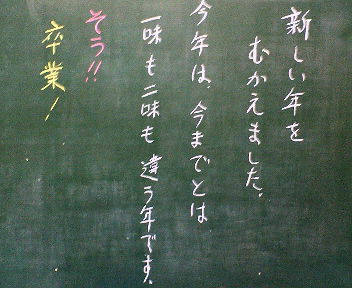 新しい年を
むかえました。
今年は、今までとは
一味も二味も違う年です。
そう!!
卒業!